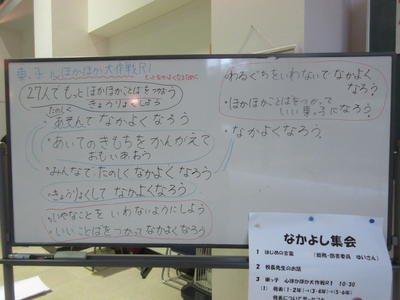 東っ子 心ほかほか大作戦R1
もっとなかよくなるために
27人でもっとほかほかことばをつかおう
たのしく きょうりょくしよう
・あそんで なかよくなろう
・あいてのきもちをかんがえて
おもいあおう
・みんなで たのしく なかよくなろう
・きょうりょくして なかよくなろう
・いやなことを いわないようにしよう
・いいことばをつかって なかよくなろう
わるぐちをいわないで なかよく
なろう。
・ほかほかことばをつかって
いい東っ子になろう
・なかよくなろう。
なかよし集会
1 はじめの言葉
2 校長先生のお話
3 東っ子 心ほかほか大作戦R1 10:30
(1) 発表(1・2年)→(3・4年)→(5・6年)